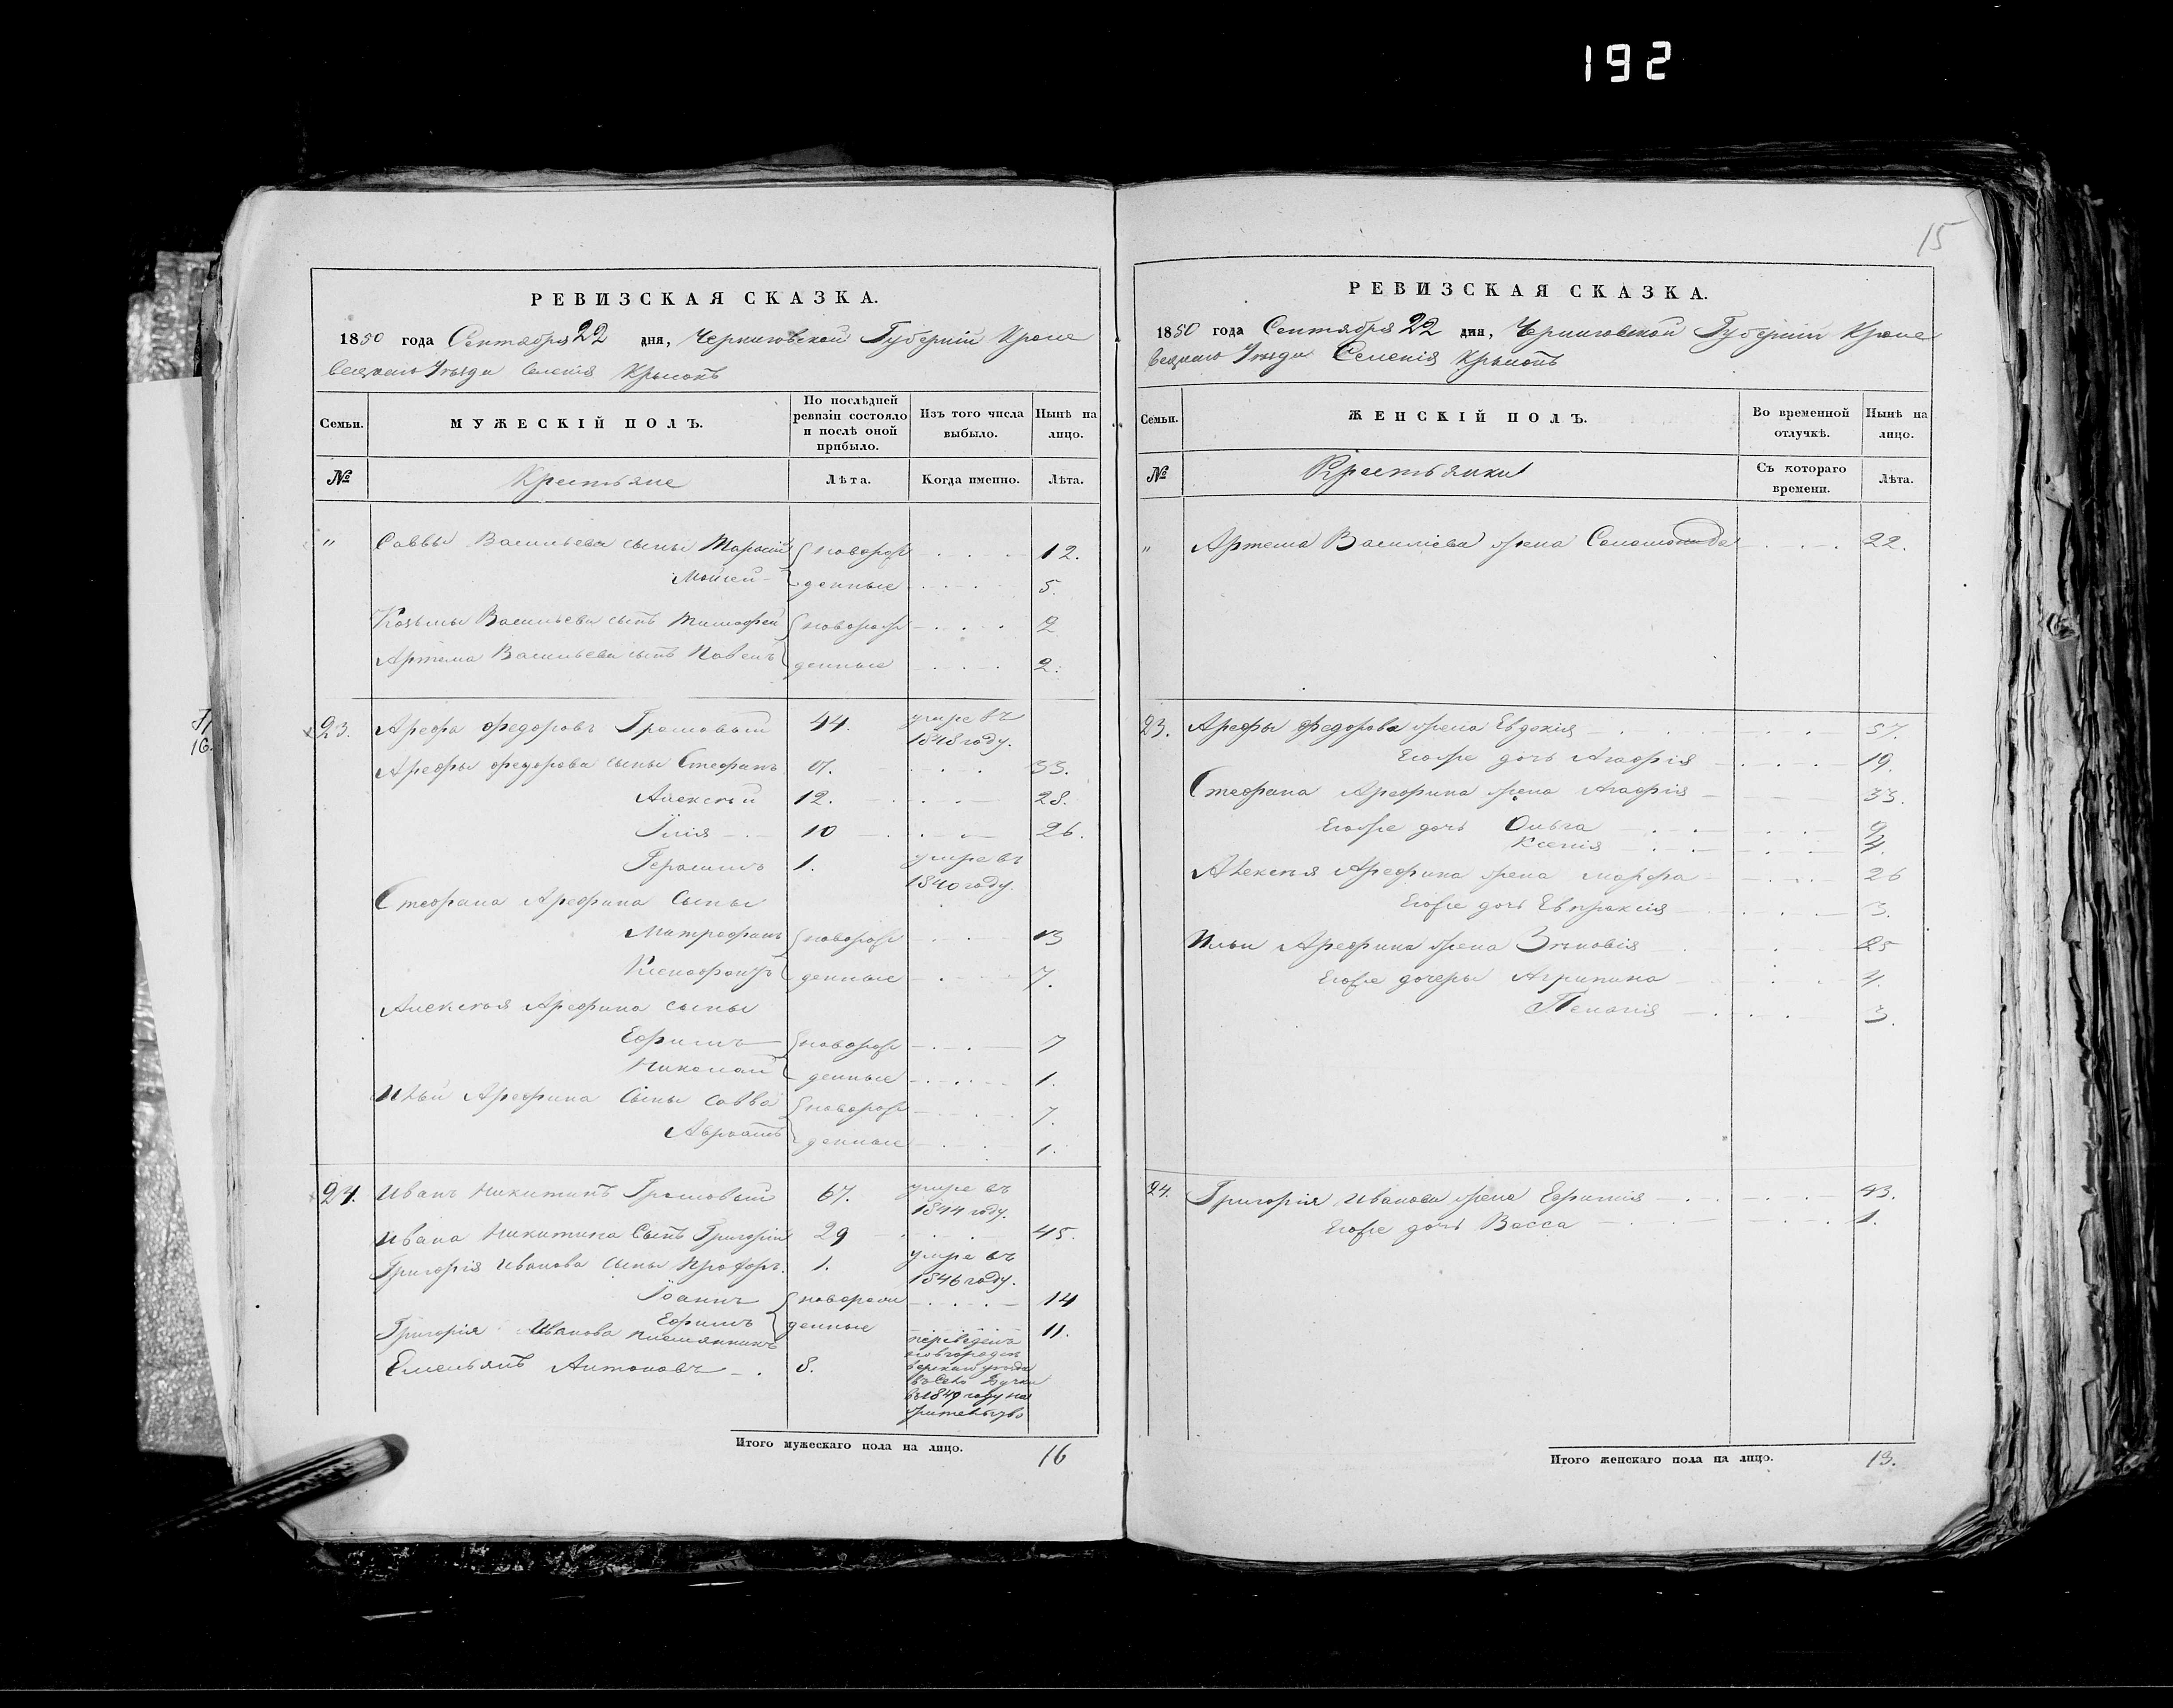 192
15
РЕВИЗСКАЯ СКАЗКА.
1850 года Сентября 22 дня, Черниговской Губерніи Кроле
вецкаго Уезда Селенія
Семьи.
МУЖЕСКІЙ ПОЛЪ.
По послѣдней ревизіи состояло и послѣ оной прибыло.
Изъ того числа выбыло.
Нынѣ на лицо.
№
Крестьяне
Лѣта.
Когда именно.
Лѣта.
" Саввы Васильева сыны Тарасій новорож 12.
Мойсей денные 5.
Козьмы Васильева сынъ Тимофей новорож 2
Артема Васильева сынъ Павелъ денные 2.
J1
16.
23. Арефа Федоровъ Громовый 44. умре въ
1848 году.
Арефы Федорова сыны Стефанъ 33.
Алексѣй 12. 28.
Илія 10 26.
Герасимъ 1. умре въ
1840 году.
Стефана Арефина сыны
Митрофанъ новорож 13
Ксенофонтъ денные 7.
Алексѣя Арефина сыны
Ефимъ новорож 7
Николай денные 1.
Ильи Арефина сыны Савва новорож 7.
денные 1.
24. Иванъ Никитинъ Громовый 67. умре въ
1844 году.
Ивана Никитина Сынъ Григорій 29 45.
Григорія Иванова сыны 1. умре въ
1846 году.
Іоаннъ новорож 14
Ефимъ денные 11.
Григорія Иванова племянникъ
Емельянъ Антоновъ 8. переведенъ
въ 1849 году на
жительство
Итого мужескаго пола на лицо. 16
РЕВИЗСКАЯ СКАЗКА.
1850 года Сентября 22 дня, Черниговской Губерніи Кроле
вецкаго Уезда Селенія
Семьи.
ЖЕНСКІЙ ПОЛЪ.
Во временной отлучкѣ.
Нынѣ на лицо.
№
Крестьянки
Съ котораго времени.
Лѣта.
" Артема Василіева жена 22.
23. Арефы Федорова жена Евдокія 57.
Егоже дочь Агафія 19.
Стефана Арефина жена Агафія 33.
Егоже дочь Ольга 9
Ксенія 4.
Алексѣя Арефина жена Марфа 26
Егоже дочь Евпраксія 3.
Ильи Арефина жена Зѣновія 25
Егоже дочеры Агрипина 4.
Пелагія 3.
24. Григорія Иванова жена Ефимія 43.
Егоже дочь Васса 1.
Итого женскаго пола на лицо. 13.